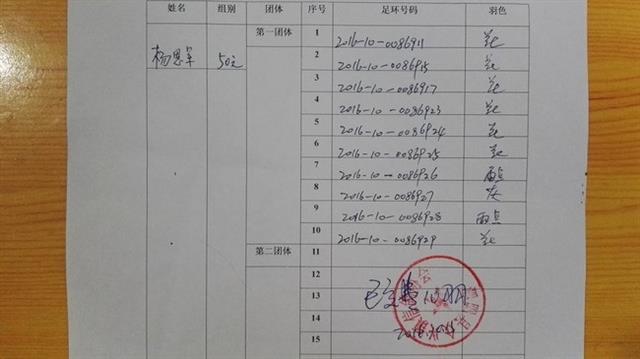 姓名 组别 团体 序号 足环号码 羽色
杨思军 50元 第一团体 1 2016-10-0086911 花
2 2016-10-0086915 花
3 2016-10-0086917 花
4 2016-10-0086923 花
5 2016-10-0086924 花
6 2016-10-0086925 花
7 2016-10-0086926 雨点
8 2016-10-0086927 灰
9 2016-10-0086928 雨点
10 2016-10-0086929 花
第二团体 11
12
13
14
15